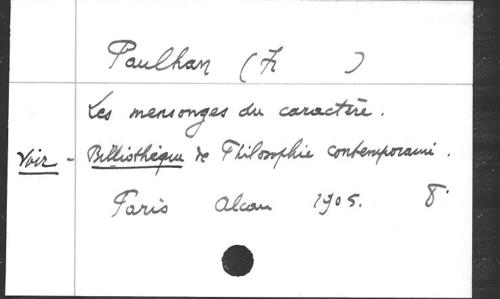 Paulhan (Fr )
Les mensonges du caractère.
Voir - Bibliothèque de Philosophie contemporaine.
Paris Alcan 1905. 8°